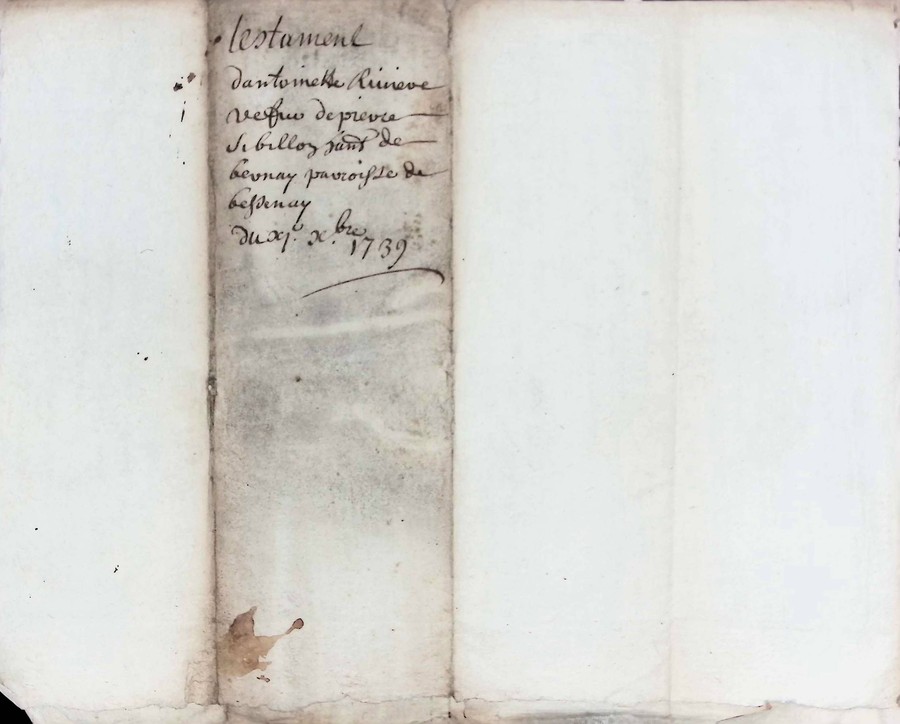 testament
dantoinette Riuiere
vefue de pierre
Sibillon de
bernay parroisse de
bessenay
du xj.e x.bre 1739